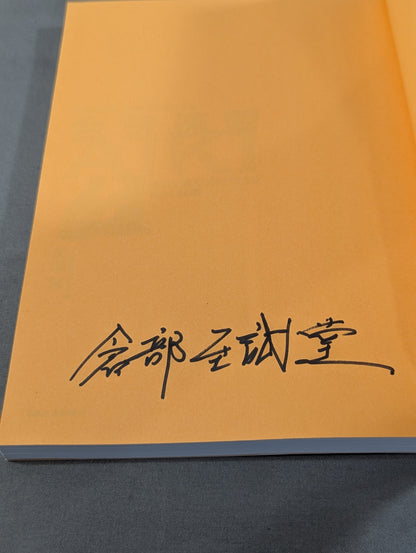 倉部至誠堂